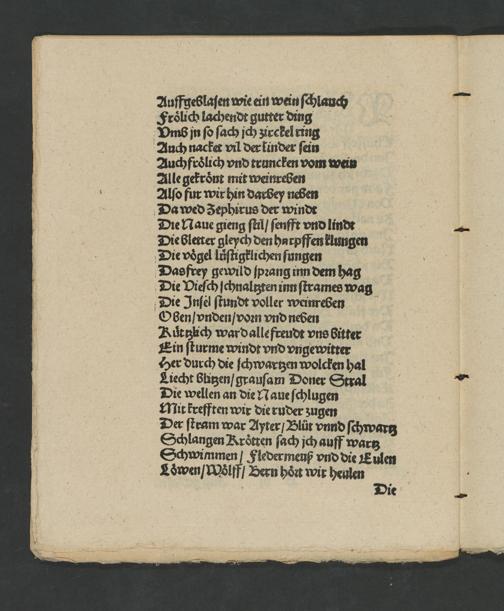 Auffgeblasen wie ein wein schlauch
Frölich lachendt gutter ding
Vmb jn so sach jch zirckel ring
Auch nacket vil der kinder sein
Auch frölich vnd truncken vom wein
Alle gekrönt mit weinreben
Also fur wir hin darbey neben
Da wed Zephirus der windt
Die Naue gieng stil/ senfft vnd lindt
Die bletter gleych den harpffen klungen
Die vögel lüstigklichen sungen
Das frey gewild sprang inn dem hag
Die Viesch schnaltzten inn strames wag
Die Insel stundt voller weinreben
Oben/ vnden/ vorn vnd neben
Kützlich ward alle freudt vns bitter
Ein sturme windt vnd vngewitter
Her durch die schwartzen wolcken hal
Liecht blitzen/ grausam Doner Stral
Die wellen an die Naue schlugen
Mit krefften wir die ruder zugen
Der stram war Ayter/ Blüt vnnd schwartz
Schlangen Krötten sach jch auff wartz
Schwimmen/ Fledermeuß vnd die Eulen
Löwen/ Wölff/ Bern hört wir heulen
Die